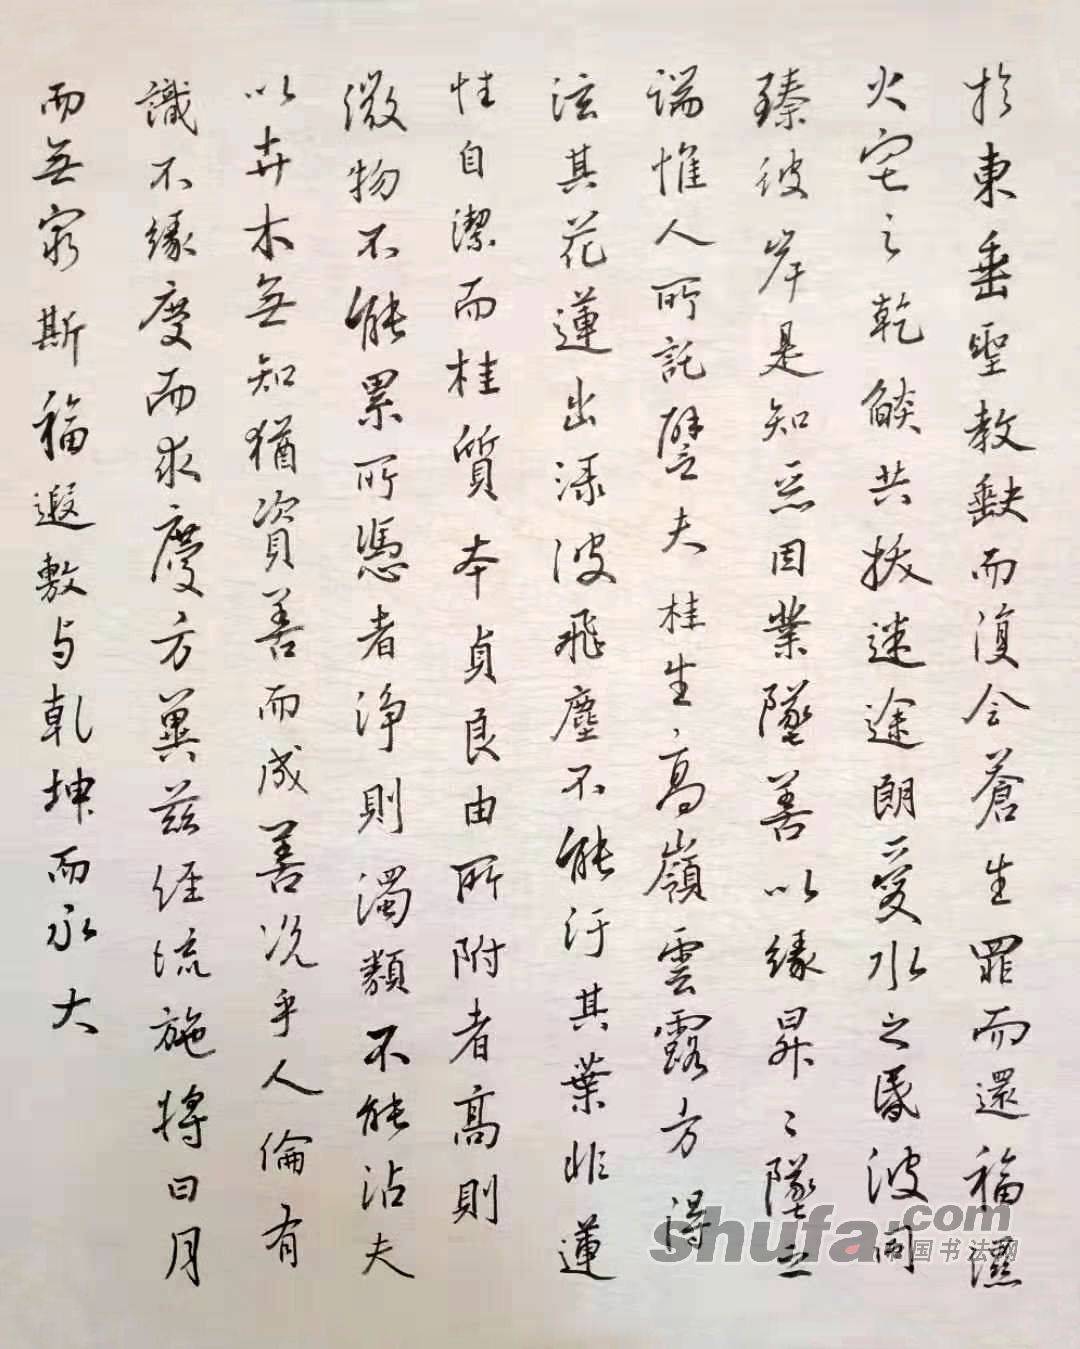 於東垂聖教缺而復全蒼生罪而還福濕
火宅之乾燄共拔迷途朗愛水之昏波同
臻彼岸是知惡因業墜善以緣昇〻墜之
端惟人所託譬夫桂生高嶺雲露方得
泫其花蓮出淥波飛塵不能汙其葉非蓮
性自潔而桂質本貞良由所附者高則
微物不能累所憑者淨則濁類不能沾夫
以卉木無知猶資善而成善況乎人倫有
識不緣慶而求慶方冀茲經流施將日月
而無窮斯福遐敷与乾坤而永大
shufa.com
中国书法网